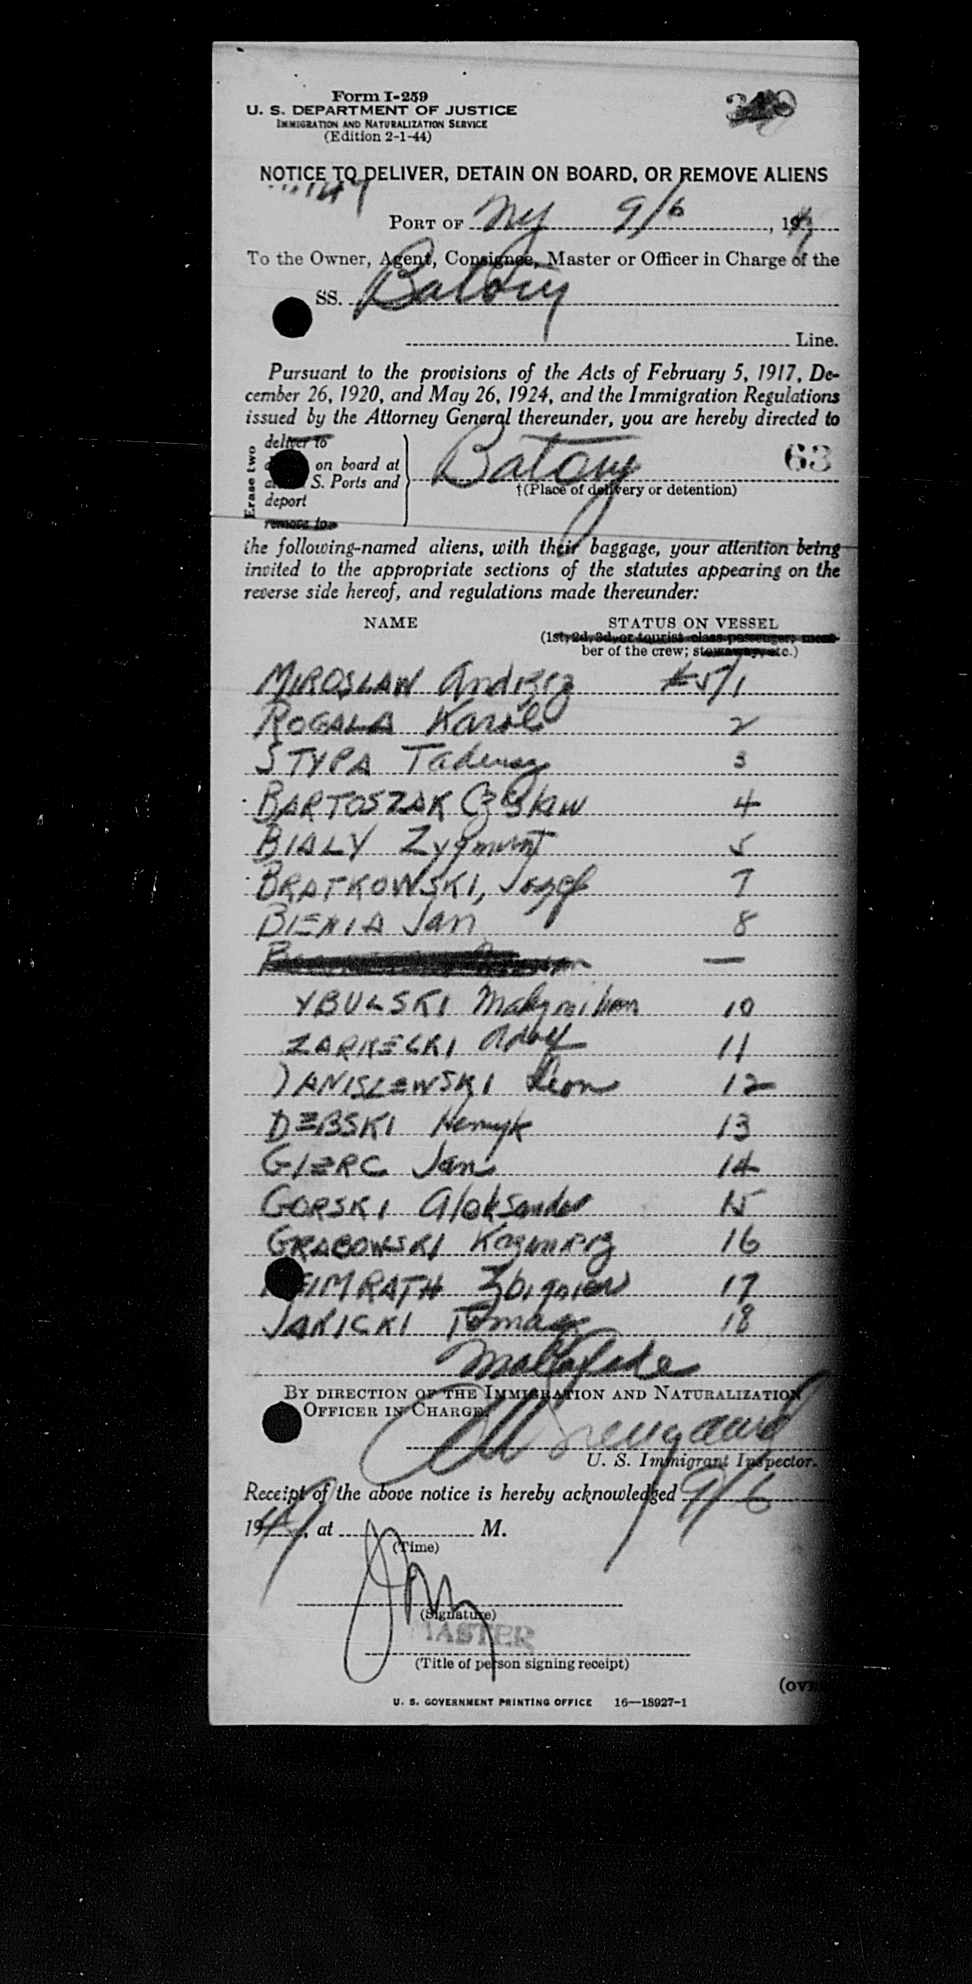 Form I-259
U. S. DEPARTMENT OF JUSTICE
IMMIGRATION AND NATURALIZATION SERVICE
(Edition 2-1-44)
NOTICE TO DELIVER, DETAIN ON BOARD, OR REMOVE ALIENS
PORT OF NY 9/6, 1947
To the Owner, Agent, Consignee, Master or Officer in Charge of the
SS. Batory
Line.
Pursuant to the provisions of the Acts of February 5, 1917, De-
cember 26, 1920, and May 26, 1924, and the Immigration Regulations
issued by the Attorney General thereunder, you are hereby directed to
Erase two
deliver to
on board at
S. Ports and
deport
remove to
Batory 63
†(Place of delivery or detention)
the following-named aliens, with their baggage, your attention being
invited to the appropriate sections of the statutes appearing on the
reverse side hereof, and regulations made thereunder:
NAME STATUS ON VESSEL
(1st, 2d, 3d, or tourist class passenger; mem-
ber of the crew; stowaway, etc.)
MIROSLAW Andrzej #5/1
ROGALA Karol 2
STYPA Tadeusz 3
BARTOSZAK Czeslaw 4
BIALY Zygmunt 5
BRATKOWSKI, Jozef 7
BIENIA Jan 8
—
YBULSKI Maksymilian 10
ZARKECKI Adolf 11
DANISLEWSKI Leon 12
DEBSKI Henryk 13
GIERC Jan 14
GORSKI Aleksander 15
GRABOWSKI Kazimierz 16
HEIMRATH Zbigniew 17
JARICKI Tomasz 18
Mala fide
BY DIRECTION OF THE IMMIGRATION AND NATURALIZATION
OFFICER IN CHARGE.
U. S. Immigrant Inspector.
Receipt of the above notice is hereby acknowledged 9/6
1947, at M.
(Time)
(Signature)
MASTER
(Title of person signing receipt)
(over
U. S. GOVERNMENT PRINTING OFFICE 16—18927-1